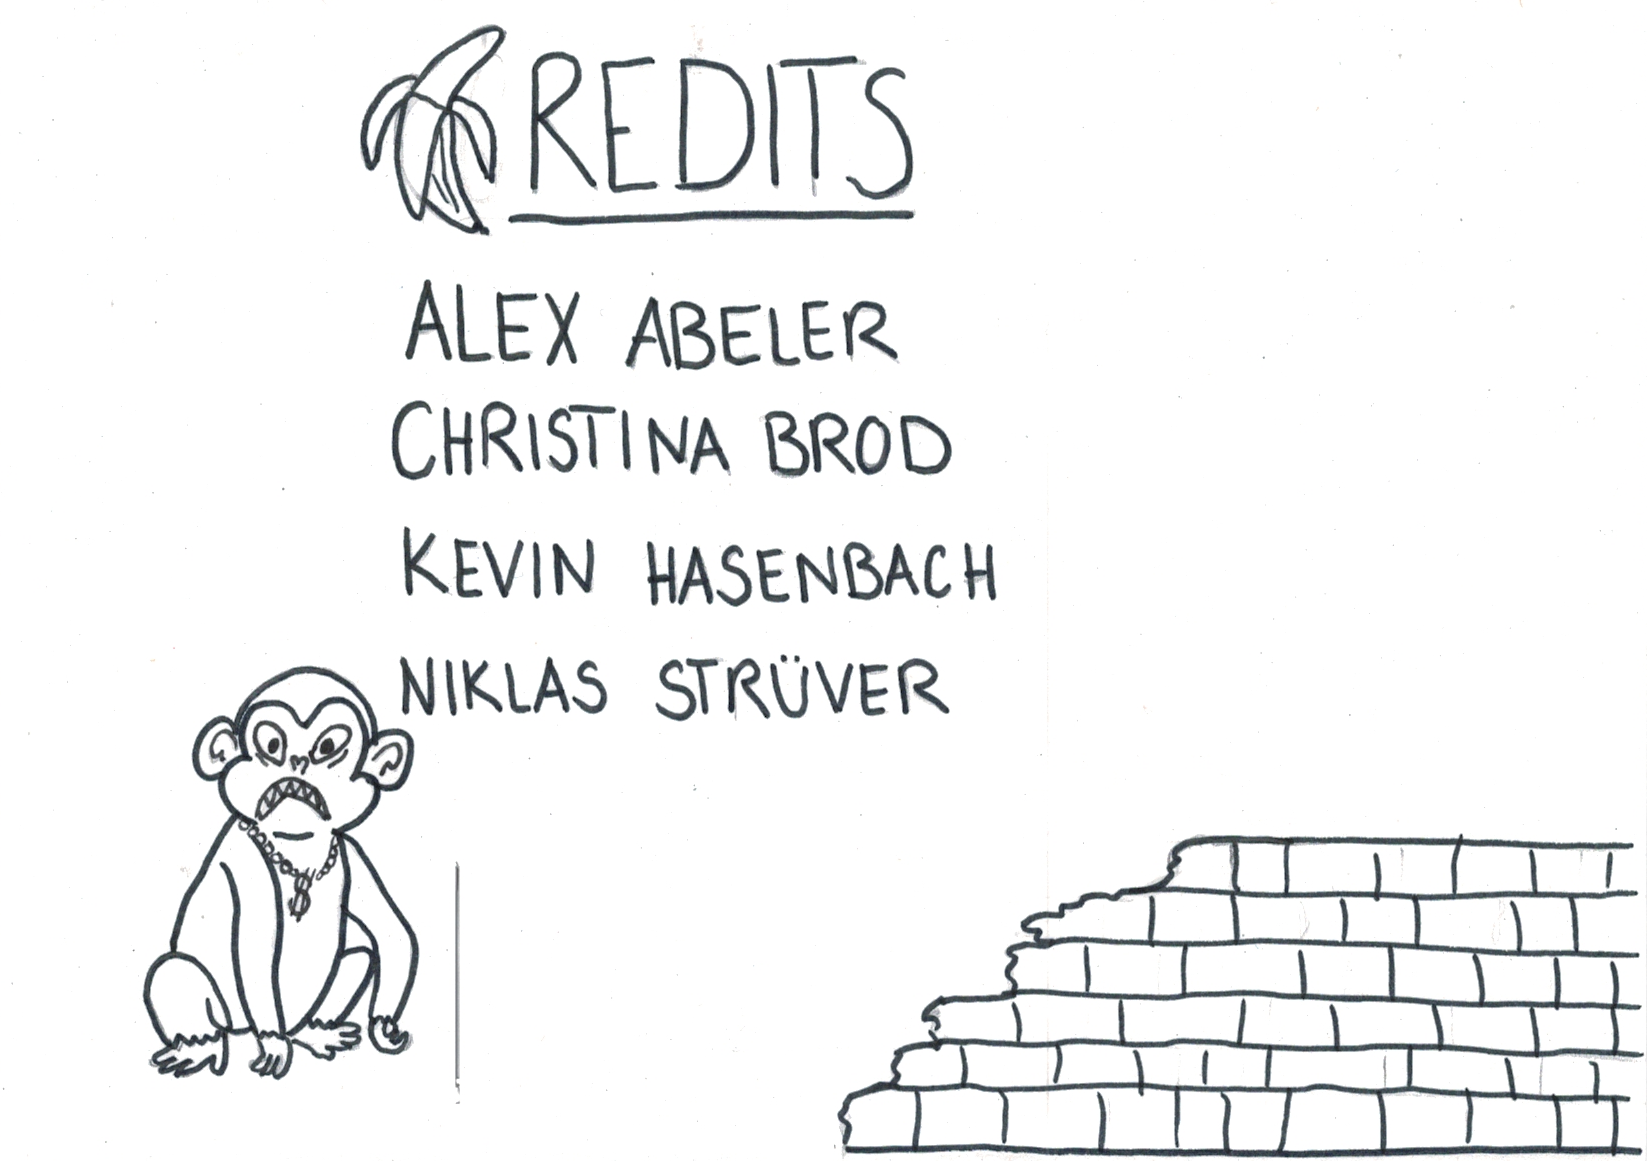 REDITS
ALEX ABELER
CHRISTINA BROD
KEVIN HASENBACH
NIKLAS STRÜVER
$